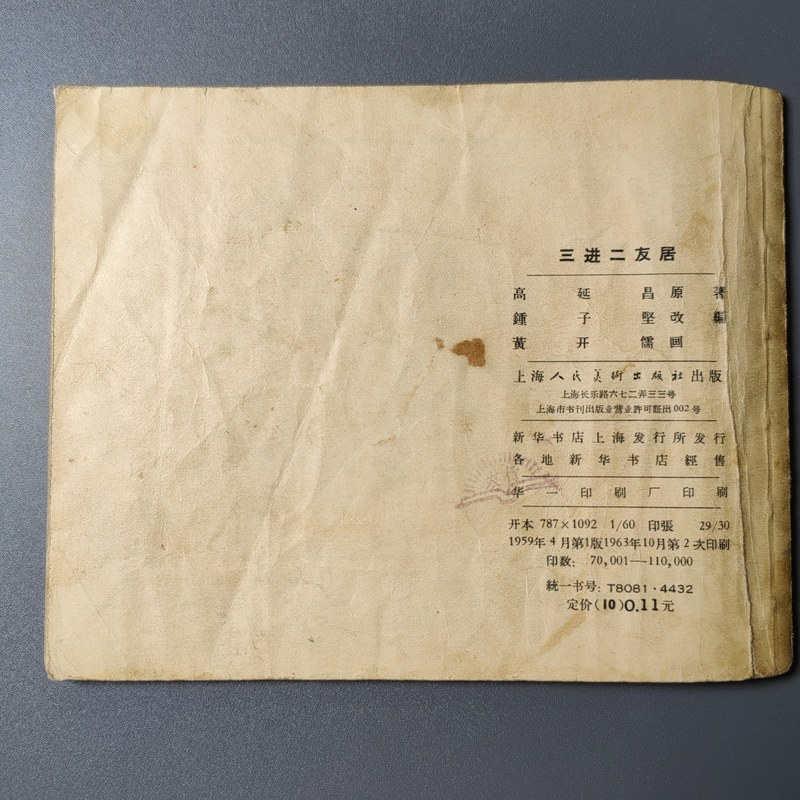 三进二友居
高延昌原著
鍾子堅改編
黃开儒画
上海人民美術出版社出版
上海长乐路六七二弄三三号
上海市书刊出版业营业許可証出002号
新华书店上海发行所发行
各地新华书店經售
华一印刷厂印刷
开本 787×1092 1/60 印張 29/30
1959年4月第1版1963年10月第2次印刷
印数：70,001—110,000
統一书号：T8081·4432
定价(10)0.11元